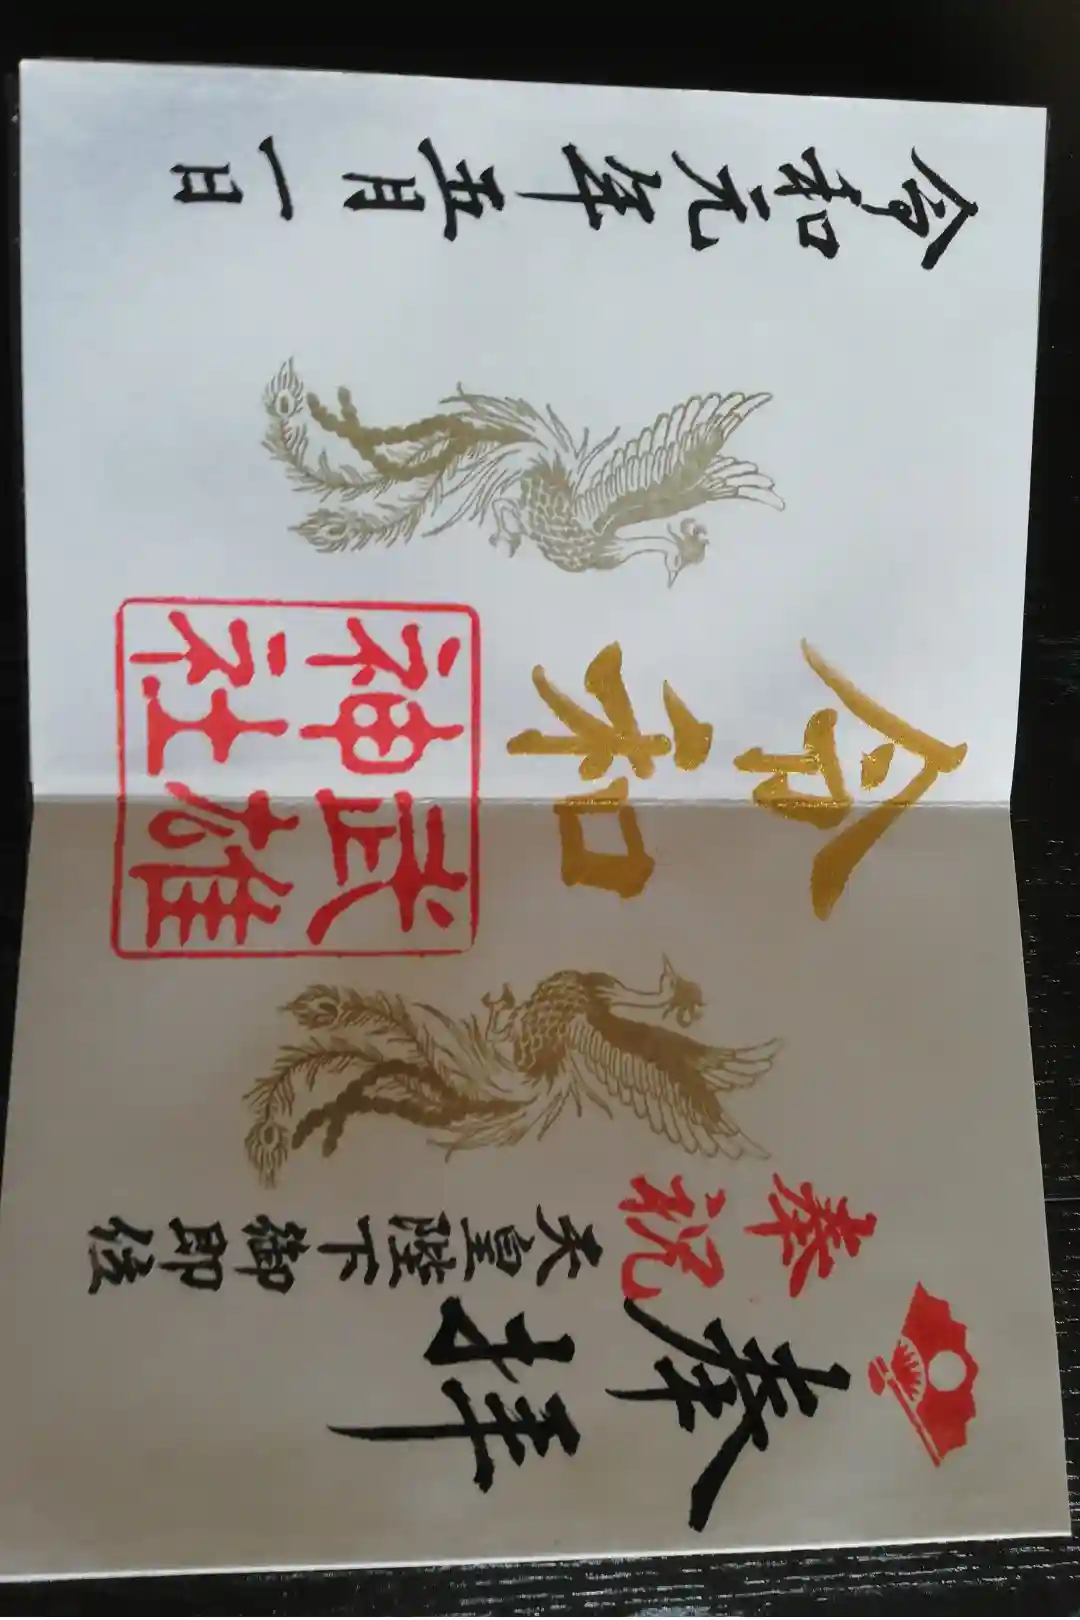 奉拝
奉祝
天皇陛下御即位
令和
武雄
神社
令和元年五月一日